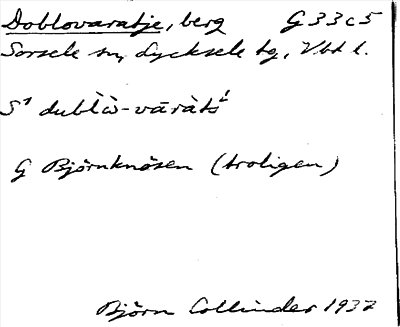 Doblovaratje, berg G 33 c 5
Sorsele sn, Lycksele tg, Vbt l.
S¹ dublɔ̀ẁ-vāràtś
G Björnknösen (troligen)
Björn Collinder 1937